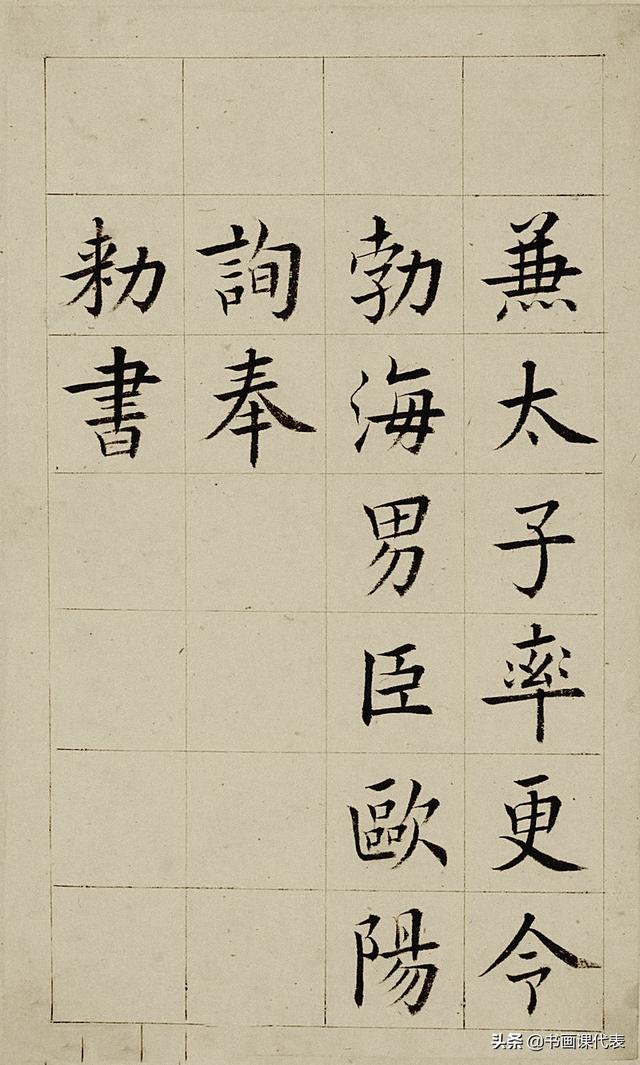 兼太子率更令
勃海男臣歐陽
詢奉
勑書
头条 @书画课代表